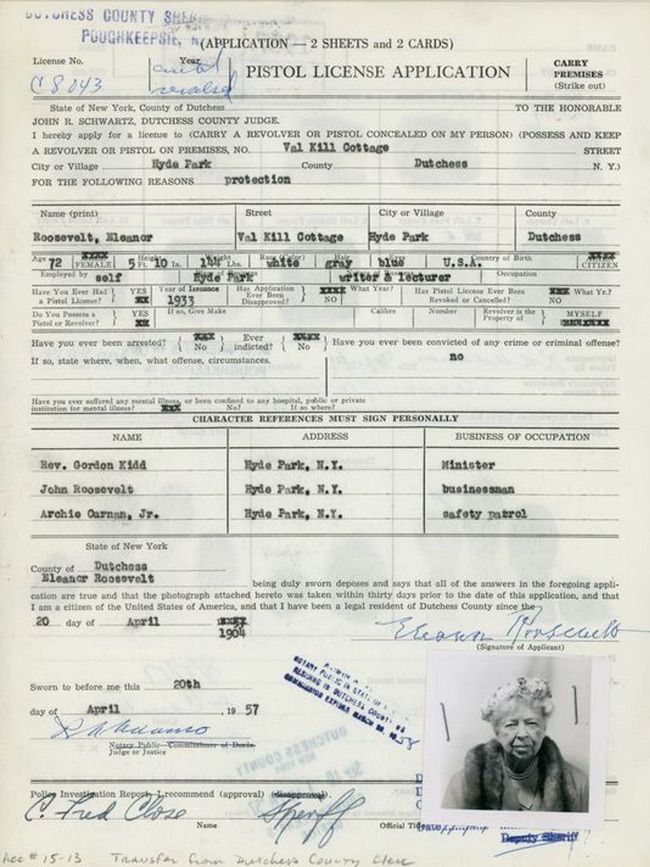 DUTCHESS COUNTY SHERIFF
POUGHKEEPSIE, N.
(APPLICATION — 2 SHEETS and 2 CARDS)
License No.
C 8043
Year
PISTOL LICENSE APPLICATION
CARRY
PREMISES
(Strike out)
State of New York, County of Dutchess
TO THE HONORABLE
JOHN R. SCHWARTZ, DUTCHESS COUNTY JUDGE.
I hereby apply for a license to (CARRY A REVOLVER OR PISTOL CONCEALED ON MY PERSON) (POSSESS AND KEEP
A REVOLVER OR PISTOL ON PREMISES, NO. Val Kill Cottage STREET
City or Village Hyde Park County Dutchess N. Y.)
FOR THE FOLLOWING REASONS protection
Name (print) Street City or Village County
Roosevelt, Eleanor Val Kill Cottage Hyde Park Dutchess
Age 72 FEMALE Height 5 Ft. 10 In. Weight 144 Lbs. Race (Color) white Hair gray blue U.S.A. Country of Birth CITIZEN
Employed by self Hyde Park writer & lecturer Occupation
Have You Ever Had YES Year of Issuance Has Application What Year? Has Pistol License Ever Been What Yr.?
a Pistol License? 1933 Ever Been Disapproved? NO Revoked or Cancelled? NO
Do You Possess a YES If so, Give Make Calibre Number Revolver is the MYSELF
Pistol or Revolver? Property of
Have you ever been arrested? No Ever indicted? No Have you ever been convicted of any crime or criminal offense?
If so, state where, when, what offense, circumstances. no
Have you ever suffered any mental illness, or been confined to any hospital, public or private
institution for mental illness? No? If so where?
CHARACTER REFERENCES MUST SIGN PERSONALLY
NAME ADDRESS BUSINESS OF OCCUPATION
Rev. Gordon Kidd Hyde Park, N.Y. Minister
John Roosevelt Hyde Park, N.Y. businessman
Archie Curnan, Jr. Hyde Park, N.Y. safety patrol
State of New York
County of Dutchess
Eleanor Roosevelt being duly sworn deposes and says that all of the answers in the foregoing appli-
cation are true and that the photograph attached hereto was taken within thirty days prior to the date of this application, and that
I am a citizen of the United States of America, and that I have been a legal resident of Dutchess County since the
20 day of April 1904
Eleanor Roosevelt
(Signature of Applicant)
Sworn to before me this 20th
day of April, 1957
NOTARY PUBLIC IN STATE OF
RESIDING IN DUTCHESS COUNTY
COMMISSION EXPIRES MARCH 30, 1958
Notary Public Commissioner of Deeds
Judge or Justice
DUTCHESS COUNTY
NEW YORK
Police Investigation Report—I recommend (approval) (disapproval).
C. Fred Close Sheriff
Name Official Title
Deputy Sheriff
Acc # 15-13 Transfer from Dutchess County Clerk